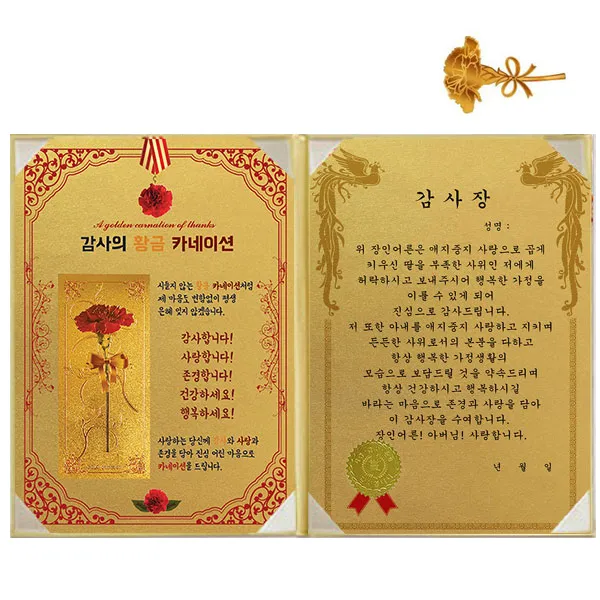 A golden carnation of thanks
감사의 황금 카네이션
시들지 않는 황금 카네이션처럼
제 마음도 변함없이 평생
은혜 잊지 않겠습니다.
감사합니다!
사랑합니다!
존경합니다!
건강하세요!
행복하세요!
사랑하는 당신께 감사와 사랑과
존경을 담아 진심 어린 마음으로
카네이션를 드립니다.
감사장
성명 :
위 장인어른은 애지중지 사랑으로 곱게
키우신 딸을 부족한 사위인 저에게
허락하시고 보내주시어 행복한 가정을
이룰 수 있게 되어
진심으로 감사드립니다.
저 또한 아내를 애지중지 사랑하고 지키며
든든한 사위로서의 본분을 다하고
항상 행복한 가정생활의
모습으로 보답드릴 것을 약속드리며
항상 건강하시고 행복하시길
바라는 마음으로 존경과 사랑을 담아
이 감사장을 수여합니다.
장인어른! 아버님! 사랑합니다.
년 월 일